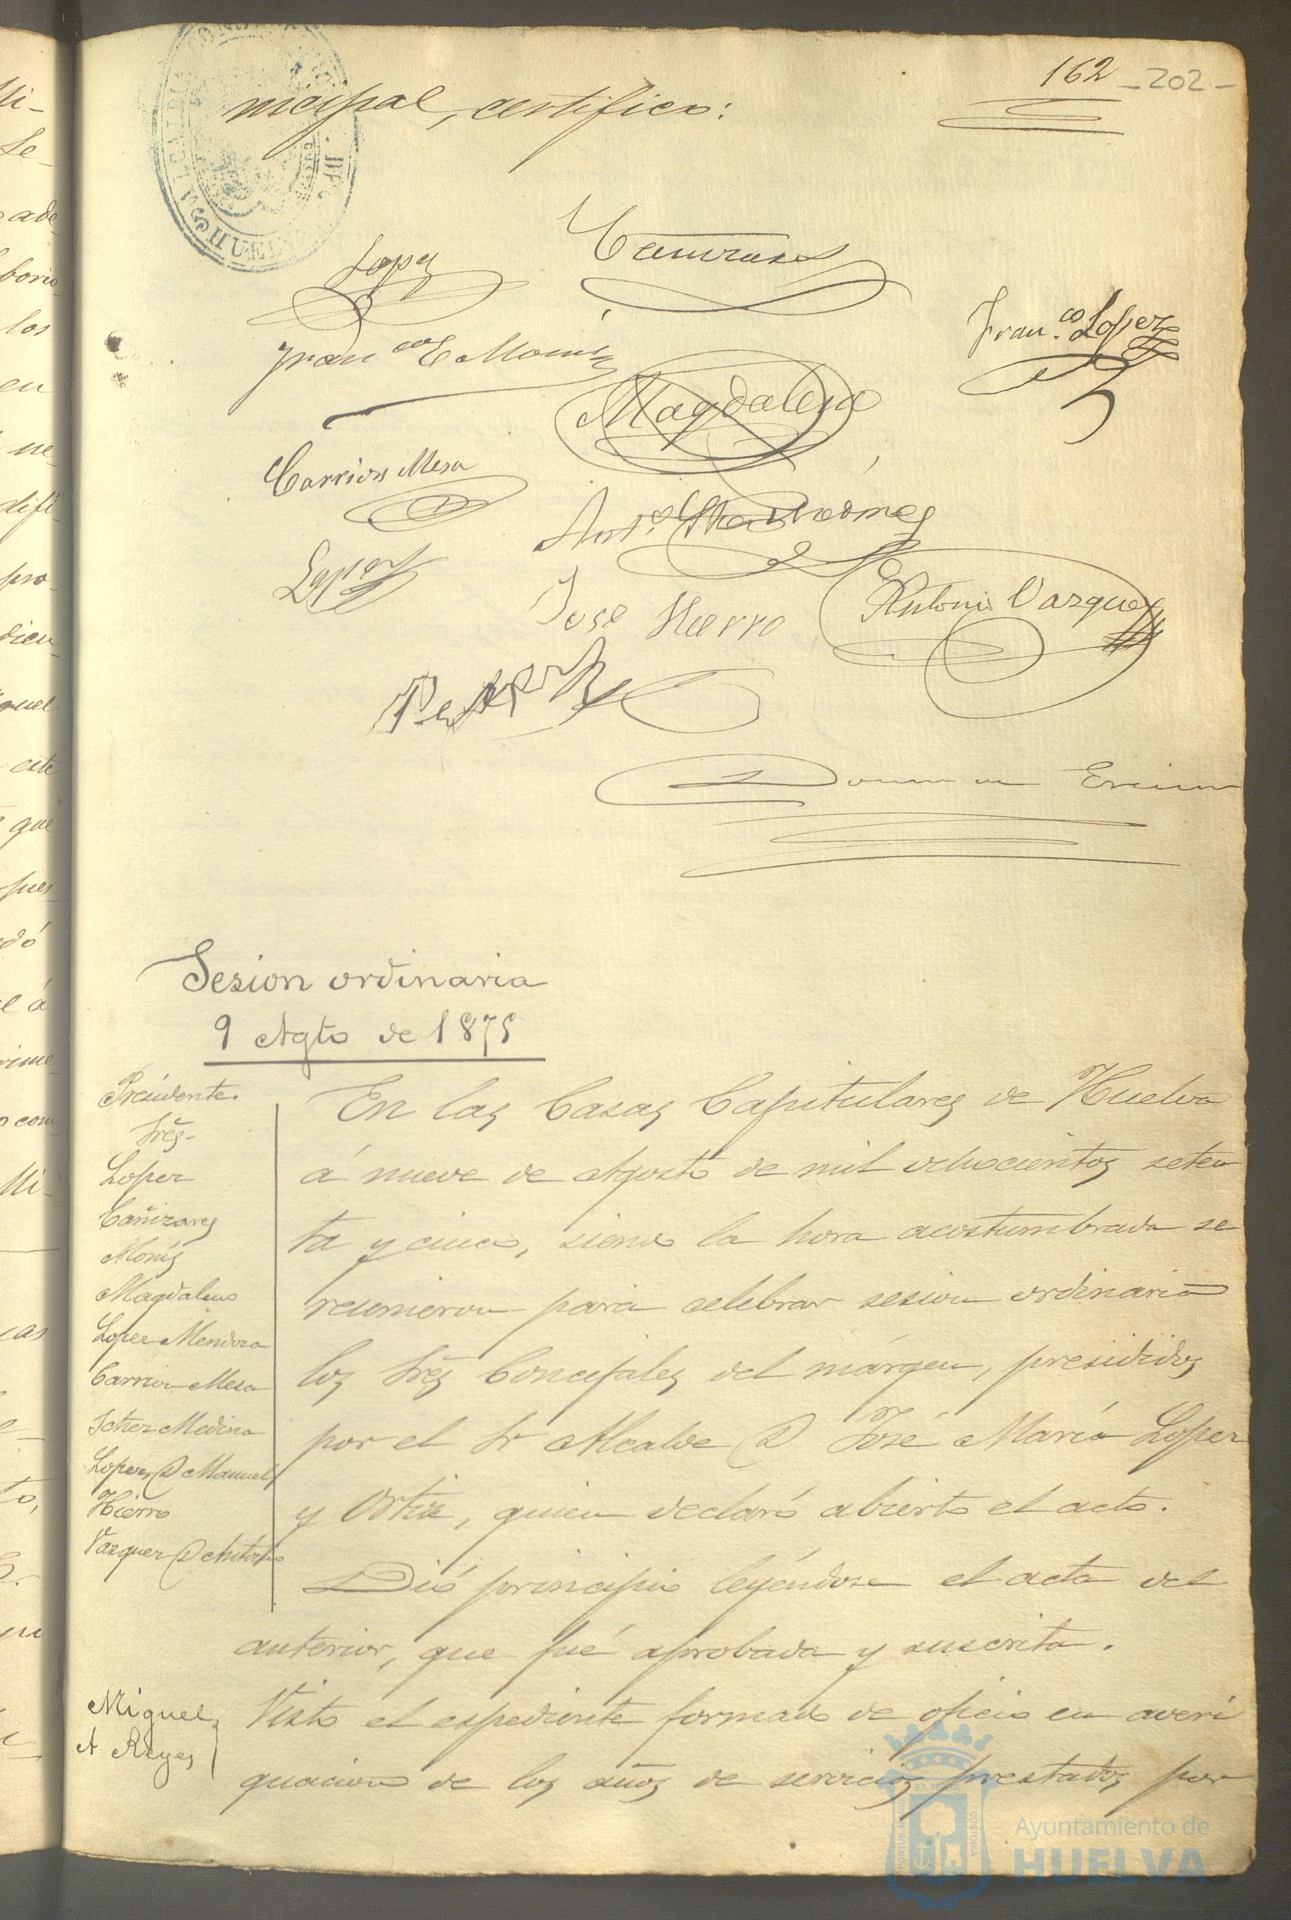 162 - 202 -
nicipal, certifico:
Lopez
Cañizares
Fran.co Lopez
Fran.co E Monís
Magdalena
Carrion Mesa
Ant.o
Lopez
José Hierro
Antonio Vazquez
Sesion ordinaria
9 Agto de 1875
Presidente.
Sres.
Lopez
Cañizares
Monís
Magdalena
Lopez Mendoza
Carrion Mesa
Schez Medina
Lopez D Manuel
Hierro
Vazquez D Antonio
En las Casas Capitulares de Huelva
á nueve de Agosto de mil ochocientos seten
ta y cinco, siendo la hora acostumbrada se
reunieron para celebrar sesion ordinaria
los Sres Concejales del márgen, presididos
por el Sr Alcalde D José María Lopez
y Ortiz, quien declaró abierto el acto.
Dió principio leyéndose el acta del
anterior, que fué aprobada y suscrita.
Miguel
A Reyes
Visto el expediente formado de oficio en averi
guacion de los años de servicios prestados por
Ayuntamiento de
HUELVA